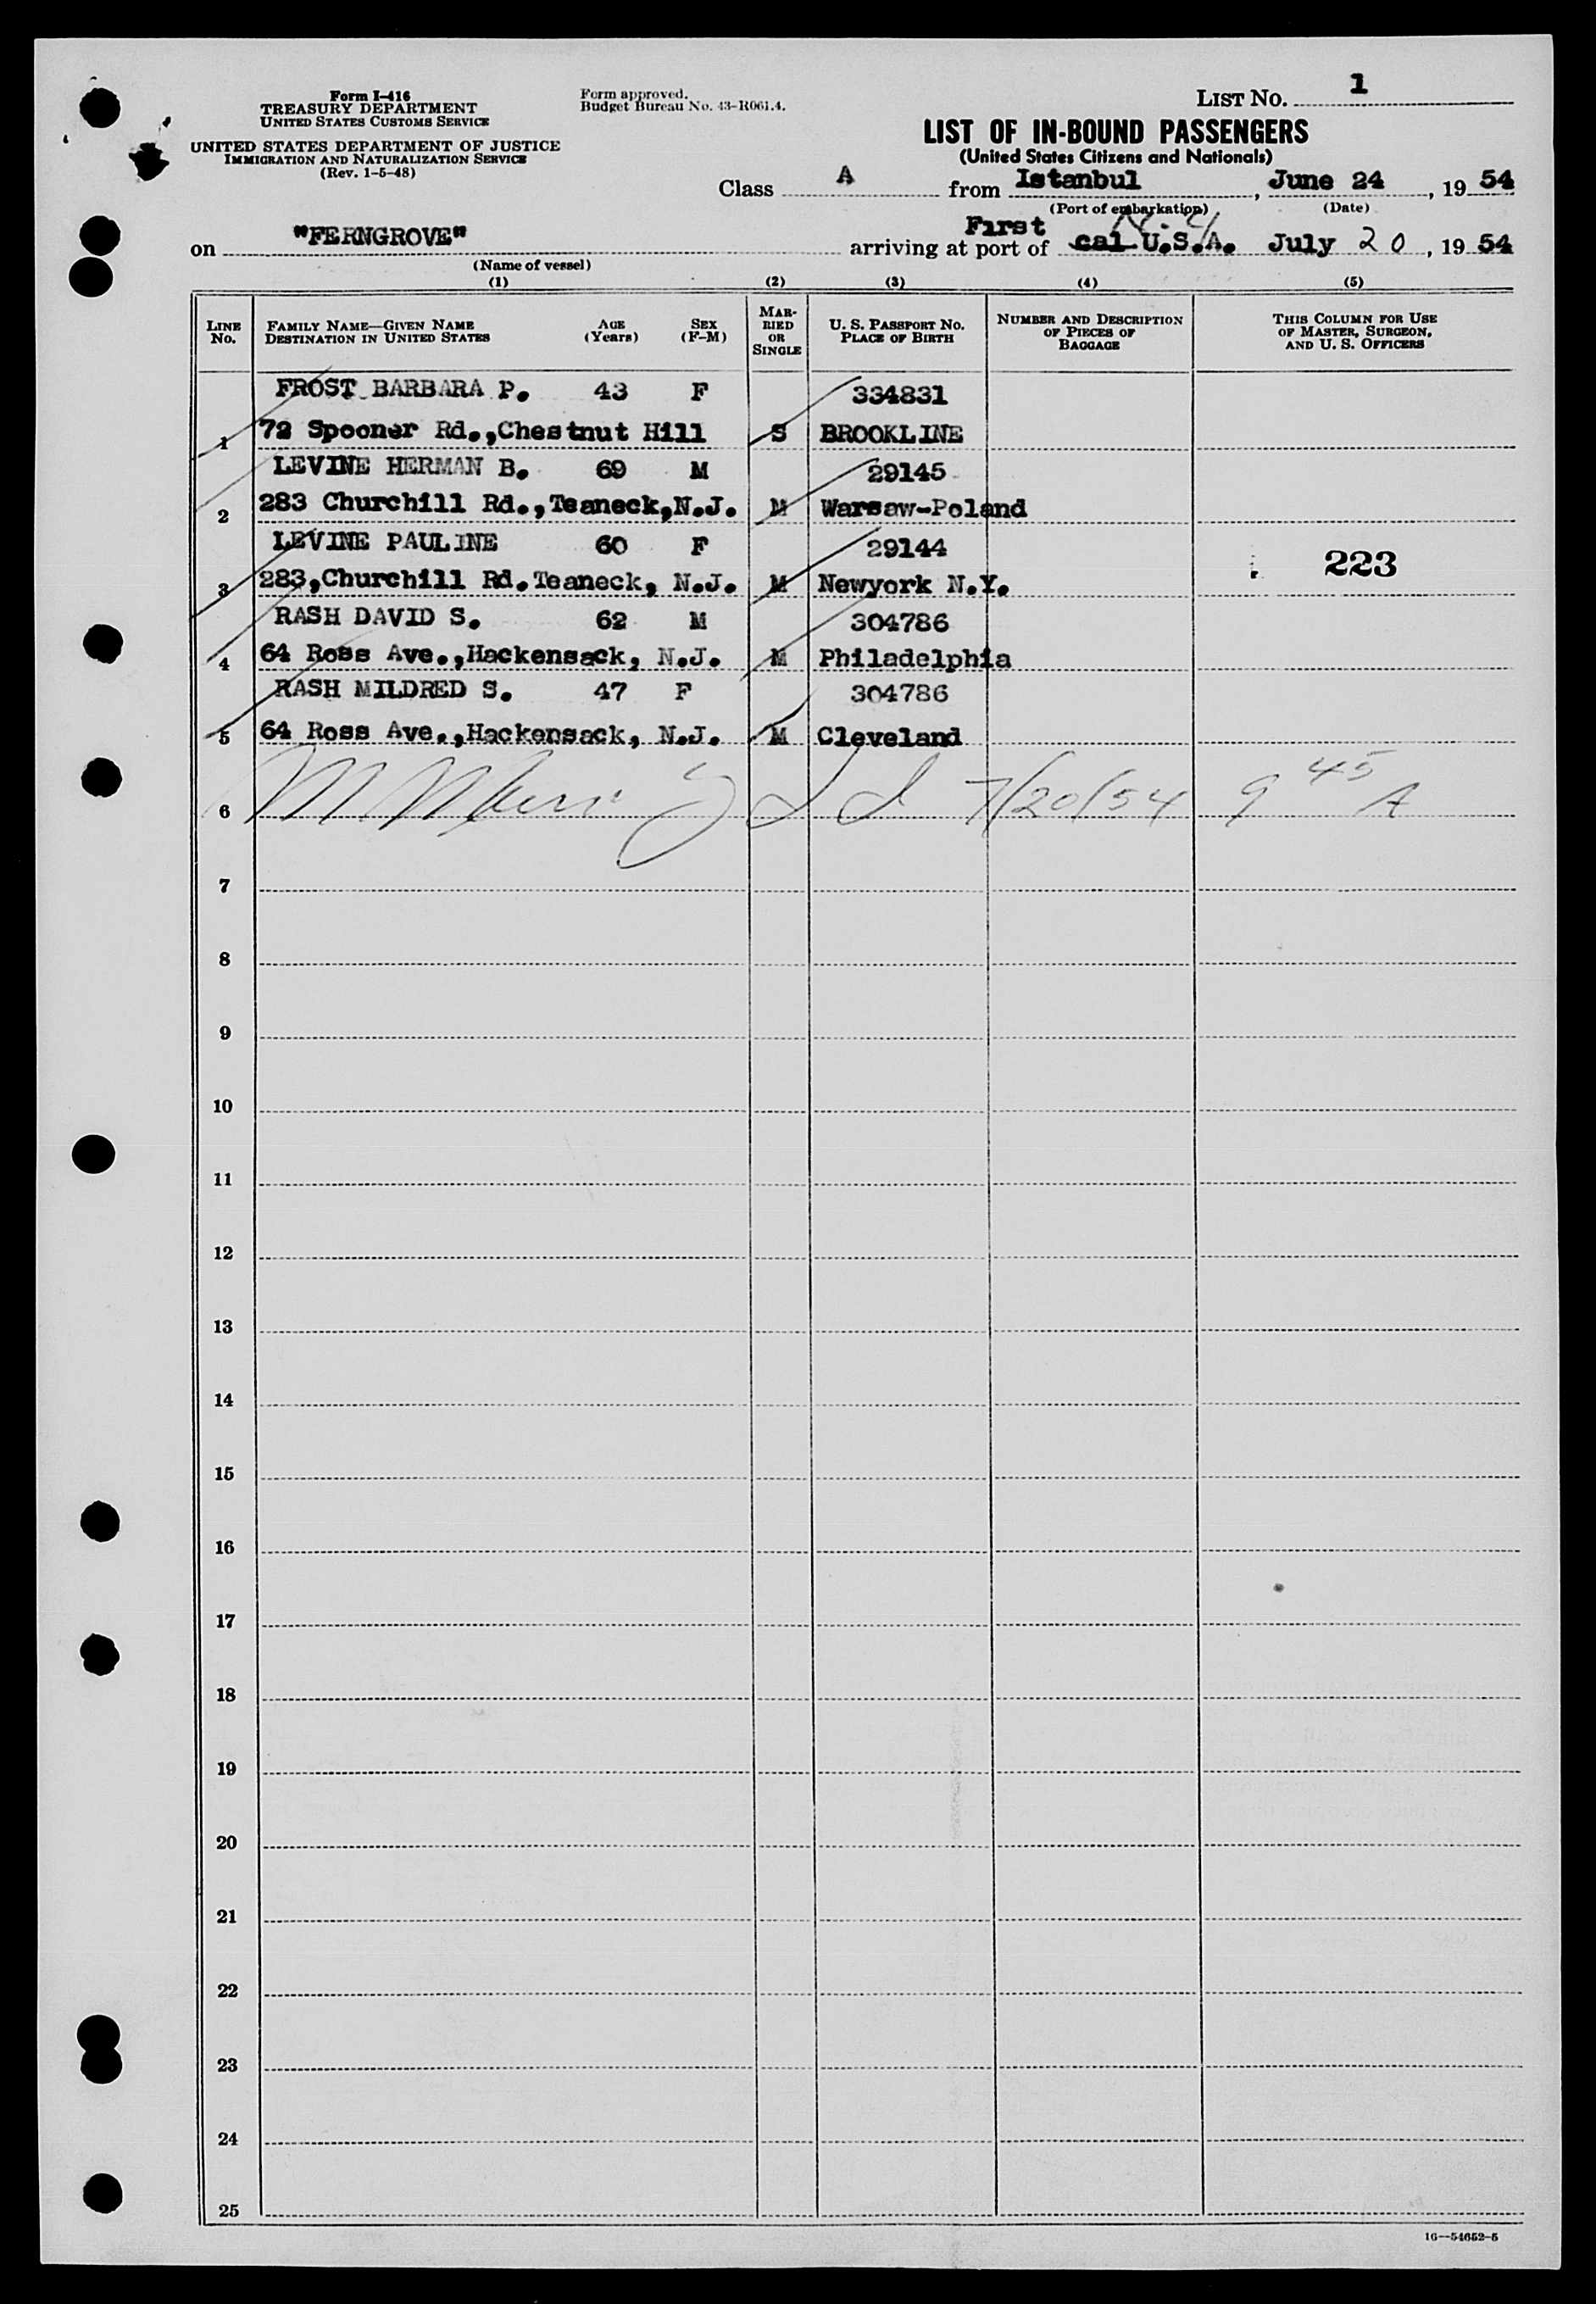 Form I-416
TREASURY DEPARTMENT
UNITED STATES CUSTOMS SERVICE
UNITED STATES DEPARTMENT OF JUSTICE
IMMIGRATION AND NATURALIZATION SERVICE
(Rev. 1-5-48)
Form approved.
Budget Bureau No. 43-R061.4.
LIST NO. 1
LIST OF IN-BOUND PASSENGERS
(United States Citizens and Nationals)
Class A from Istanbul, June 24, 19 54
(Port of embarkation) (Date)
on "FERNGROVE" arriving at port of First cal U.S.A. July 20, 19 54
(Name of vessel)
(1) (2) (3) (4) (5)
LINE NO. FAMILY NAME—GIVEN NAME DESTINATION IN UNITED STATES AGE (Years) SEX (F-M) MARRIED OR SINGLE U. S. PASSPORT NO. PLACE OF BIRTH NUMBER AND DESCRIPTION OF PIECES OF BAGGAGE THIS COLUMN FOR USE OF MASTER, SURGEON, AND U. S. OFFICERS
FROST BARBARA P. 43 F 334831
1 72 Spooner Rd.,Chestnut Hill S BROOKLINE
LEVINE HERMAN B. 69 M 29145
2 283 Churchill Rd.,Teaneck,N.J. M Warsaw-Poland
LEVINE PAULINE 60 F 29144
223
3 283,Churchill Rd.Teaneck, N.J. M Newyork N.Y.
RASH DAVID S. 62 M 304786
4 64 Ross Ave.,Hackensack, N.J. M Philadelphia
RASH MILDRED S. 47 F 304786
5 64 Ross Ave.,Hackensack, N.J. M Cleveland
6 7/20/54 9 45 A
7
8
9
10
11
12
13
14
15
16
17
18
19
20
21
22
23
24
25
16—54652-5